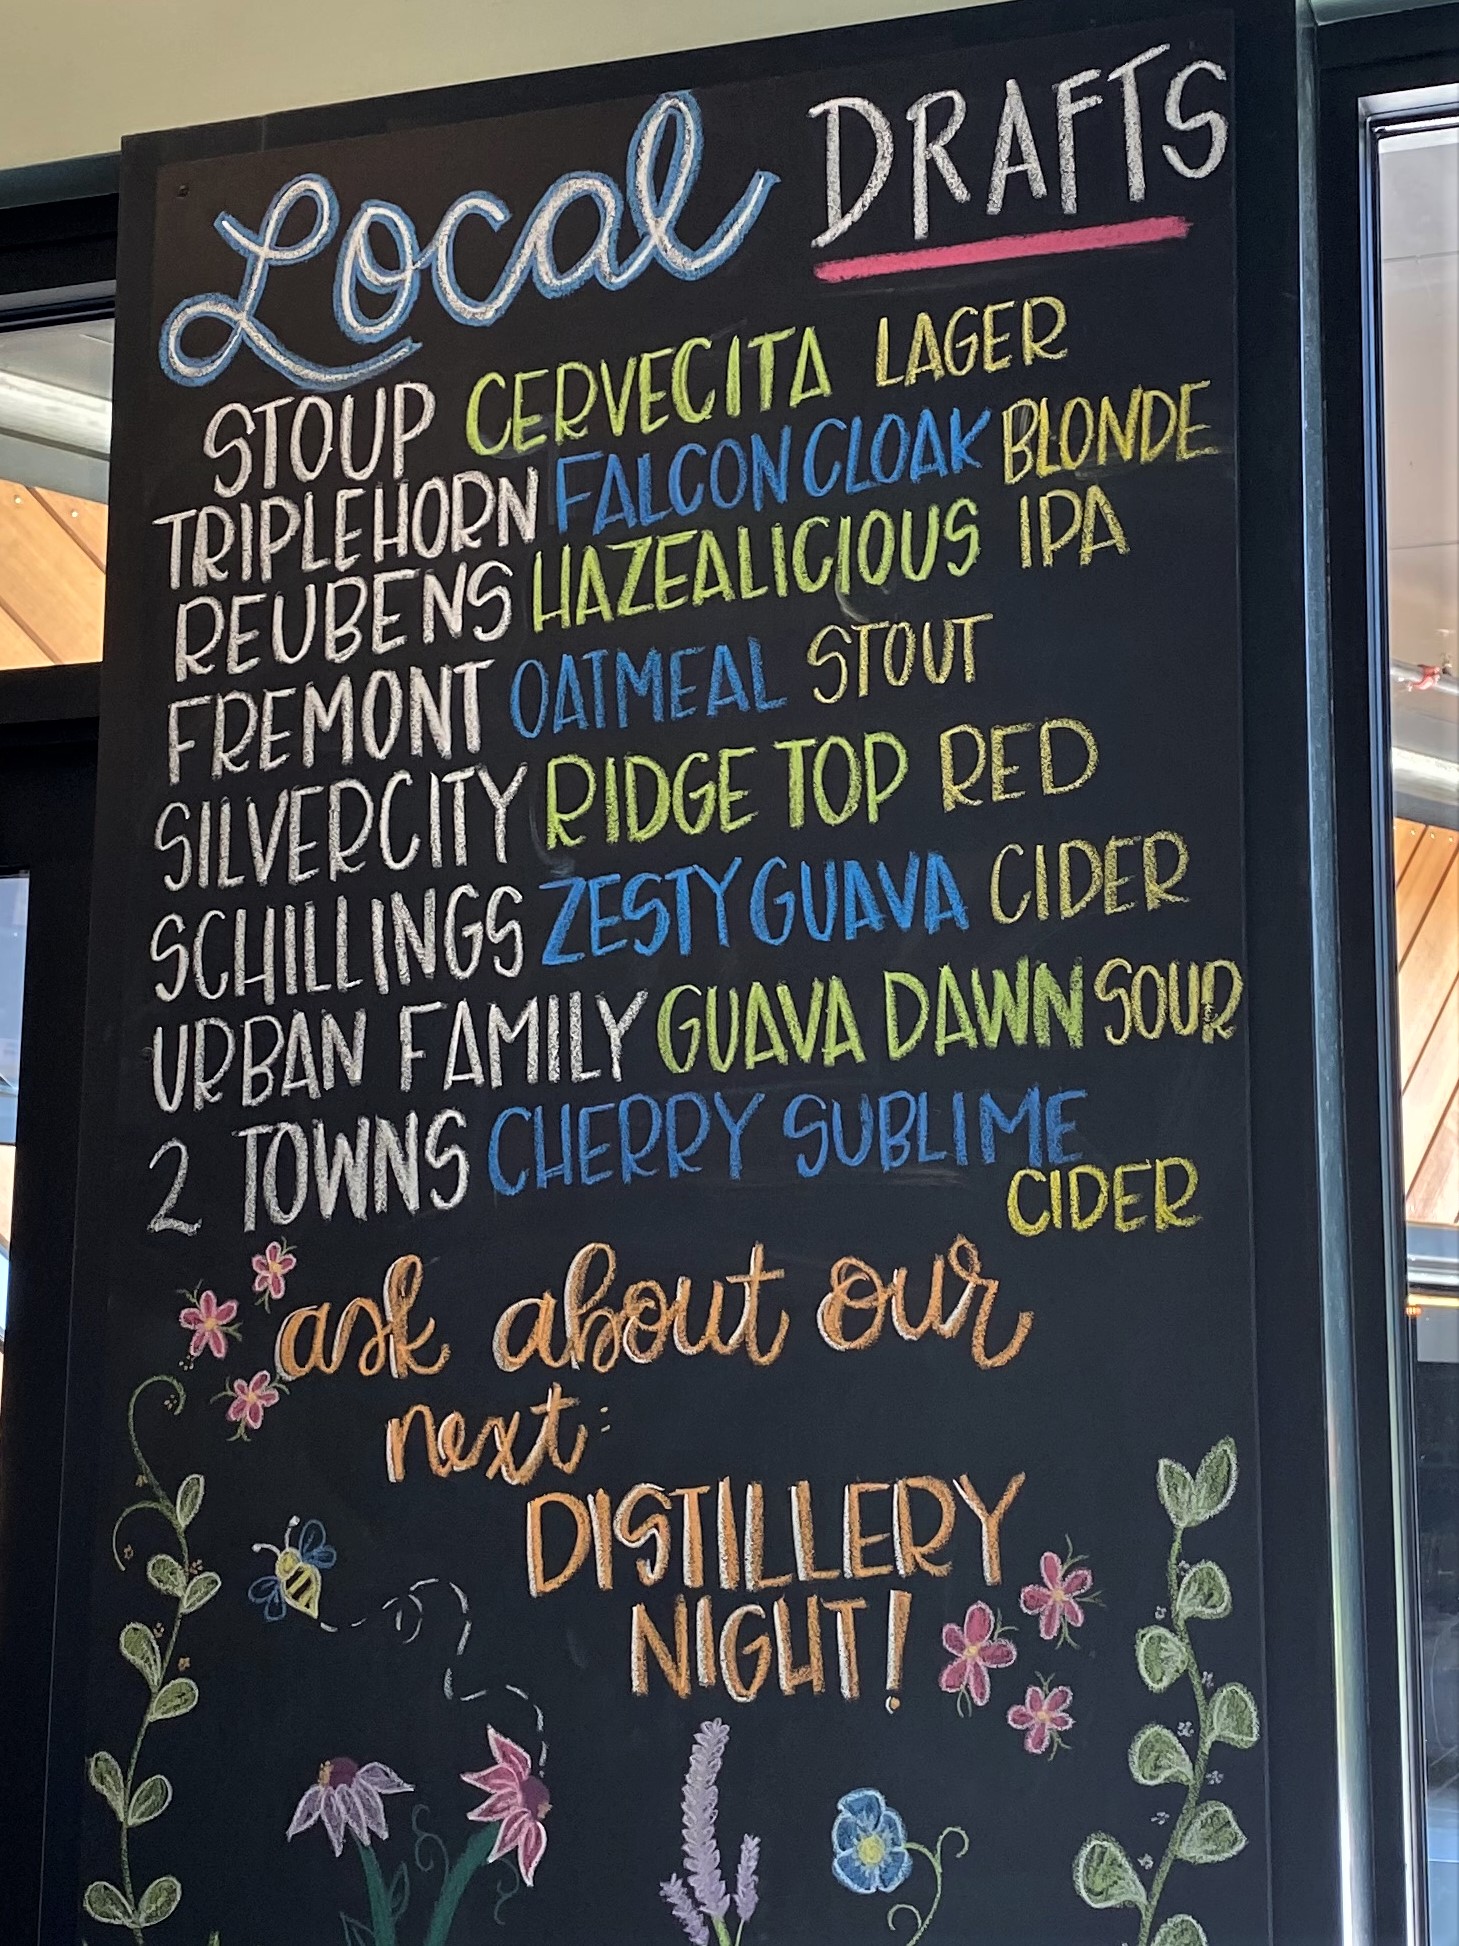 Local DRAFTS
STOUP CERVECITA LAGER
TRIPLEHORN FALCON CLOAK BLONDE
REUBENS HAZEALICIOUS IPA
FREMONT OATMEAL STOUT
SILVERCITY RIDGE TOP RED
SCHILLINGS ZESTY GUAVA CIDER
URBAN FAMILY GUAVA DAWN SOUR
2 TOWNS CHERRY SUBLIME
CIDER
ask about our
next:
DISTILLERY
NIGHT!